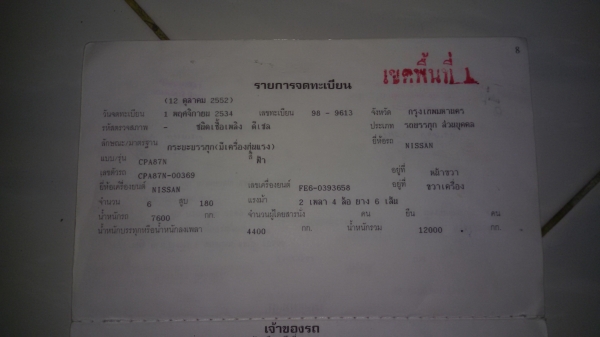 8
รายการจดทะเบียน
เขตพื้นที่ 1
(12 ตุลาคม 2552)
วันจดทะเบียน 1 พฤศจิกายน 2534 เลขทะเบียน 98 - 9613 จังหวัด กรุงเทพมหานคร
รหัสตรวจสภาพ - ชนิดเชื้อเพลิง ดีเซล ประเภท รถบรรทุก ส่วนบุคคล
ลักษณะ/มาตรฐาน กระบะบรรทุก(มีเครื่องทุ่นแรง) ยี่ห้อรถ NISSAN
แบบ/รุ่น CPA87N สี ฟ้า
เลขตัวรถ CPA87N-00369 อยู่ที่ หน้าขวา
ยี่ห้อเครื่องยนต์ NISSAN เลขเครื่องยนต์ FE6-0393658 อยู่ที่ ขวาเครื่อง
จำนวน 6 สูบ 180 แรงม้า 2 เพลา 4 ล้อ ยาง 6 เส้น
น้ำหนักรถ 7600 กก. จำนวนผู้โดยสารนั่ง คน ยืน คน
น้ำหนักบรรทุกหรือน้ำหนักลงเพลา 4400 กก. น้ำหนักรวม 12000 กก.
เจ้าของรถ